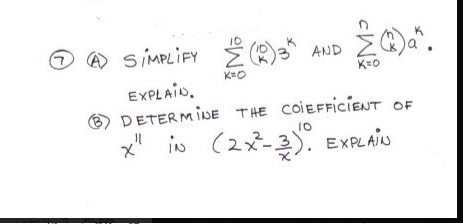 ⑦ Ⓐ SIMPLIFY $\sum_{K=0}^{10} \binom{10}{K} 3^K$ AND $\sum_{K=0}^{n} \binom{n}{K} a^K$.
EXPLAIN.
Ⓑ DETERMINE THE COIEFFICIENT OF
$x^{11}$ IN $(2x^2 - \frac{3}{x})^{10}$. EXPLAIN